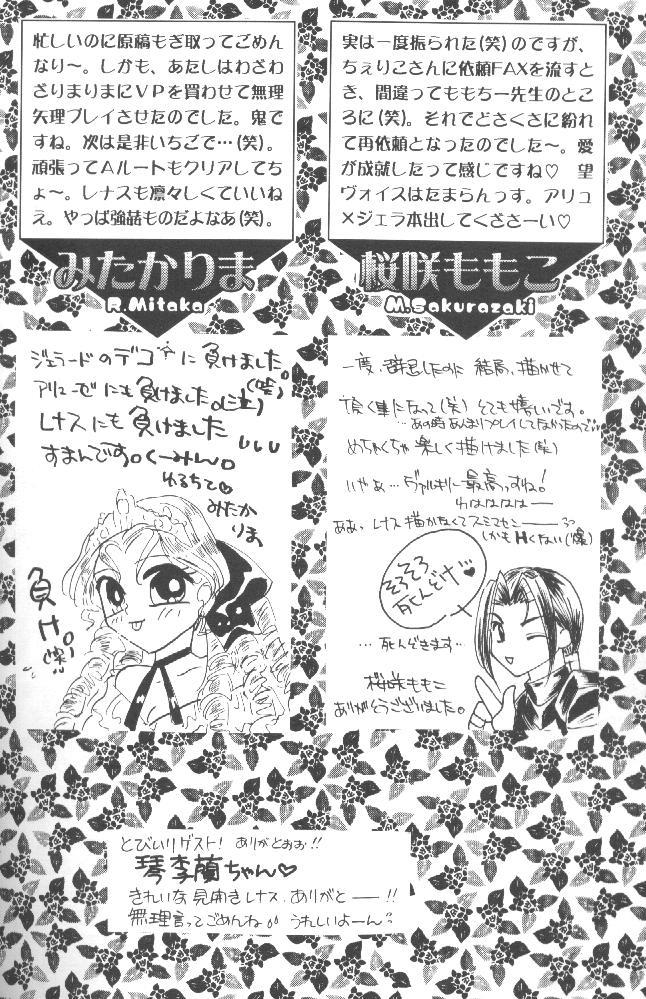 実は一度振られた(笑)のですが、
ちぇりこさんに依頼FAXを流すと
き、間違ってももちー先生のとこ
ろに(笑)。それでどさくさに紛れ
て再依頼となったのでした〜。愛
が成就したって感じですね♡　望
ヴォイスはたまらんっす。アリュ
×ジェラ本出してくださーい♡
桜咲ももこ
M.Sakurazaki
一度、群起したのに 結局、描かせて
頂く事になって(笑) とても嬉しいです。
…あの時 あんまりプレイしてなかったので…
めちゃくちゃ楽しく描けました(笑)
いやぁ…ヴァルキリー最高っすね!
わはははは―
ああ、レナス描かなくてスミマセン――
しかもHくない(爆)
そろそろ
死んどけ♥
…死んどきます…
桜咲ももこ
ありがとうございました。
忙しいのに原稿もぎ取ってごめん
なり〜。しかも、あたしはわざわ
ざりまりまにVPを買わせて無理
矢理プレイさせたのでした。鬼で
すね。次は是非いちごで…(笑)。
頑張ってAルートもクリアしてち
ょ〜。レナスも凛々しくていいね
え。やっぱ強喆ものだよなあ(笑)。
みたかりま
R.Mitaka
ジェラードのデコに負けました。(笑)
アリューゼにも負けました。(泣)
レナスにも負けました
すまんです。くーみん。
ゆるちて♡
みたか
りま
負け。
(爆)
とびいりゲスト! ありがとおお!!
琴李蘭ちゃん♡
きれいな見開きレナス、ありがと――!!
無理言ってごめんね うれしいよーん